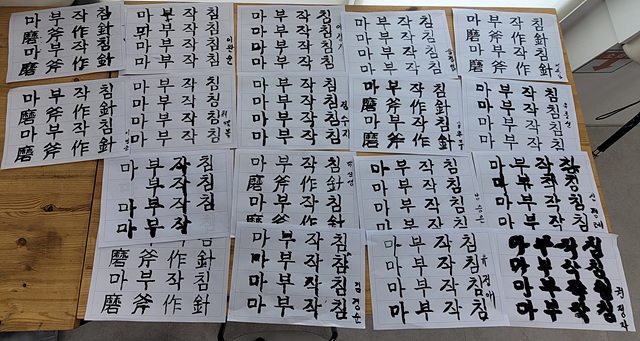 마부작침
磨斧作針
마부작침
磨斧作針
마부작침
마부작침
마부작침
마부작침
이완순
마부작침
마부작침
마부작침
마부작침
마부작침
마부작침
마부작침
마부작침
마부작침
磨斧作針
마부작침
磨斧作針
마부작침
磨斧作針
마부작침
磨斧作針
마부작침
마부작침
마부작침
마부작침
마부작침
마부작침
마부작침
마부작침
정수지
마부작침
磨斧作針
마부작침
磨斧作針
마부작침
마부작침
마부작침
마부작침
마부작침
부작침
마부작침
마부작
마부작침
磨斧作針
마부작침
磨斧作針
마부작침
마부작침
마부작침
마부작침
마부작침
마부작침
마부작침
마부작침
磨斧作針
마부작침
磨斧作針
마부작침
마부작침
마부작침
마부작침
김정순
마부작침
마부작침
마부작침
마부작침
유정애
마부작침
마부작침
마부작침
마부작침
최정자